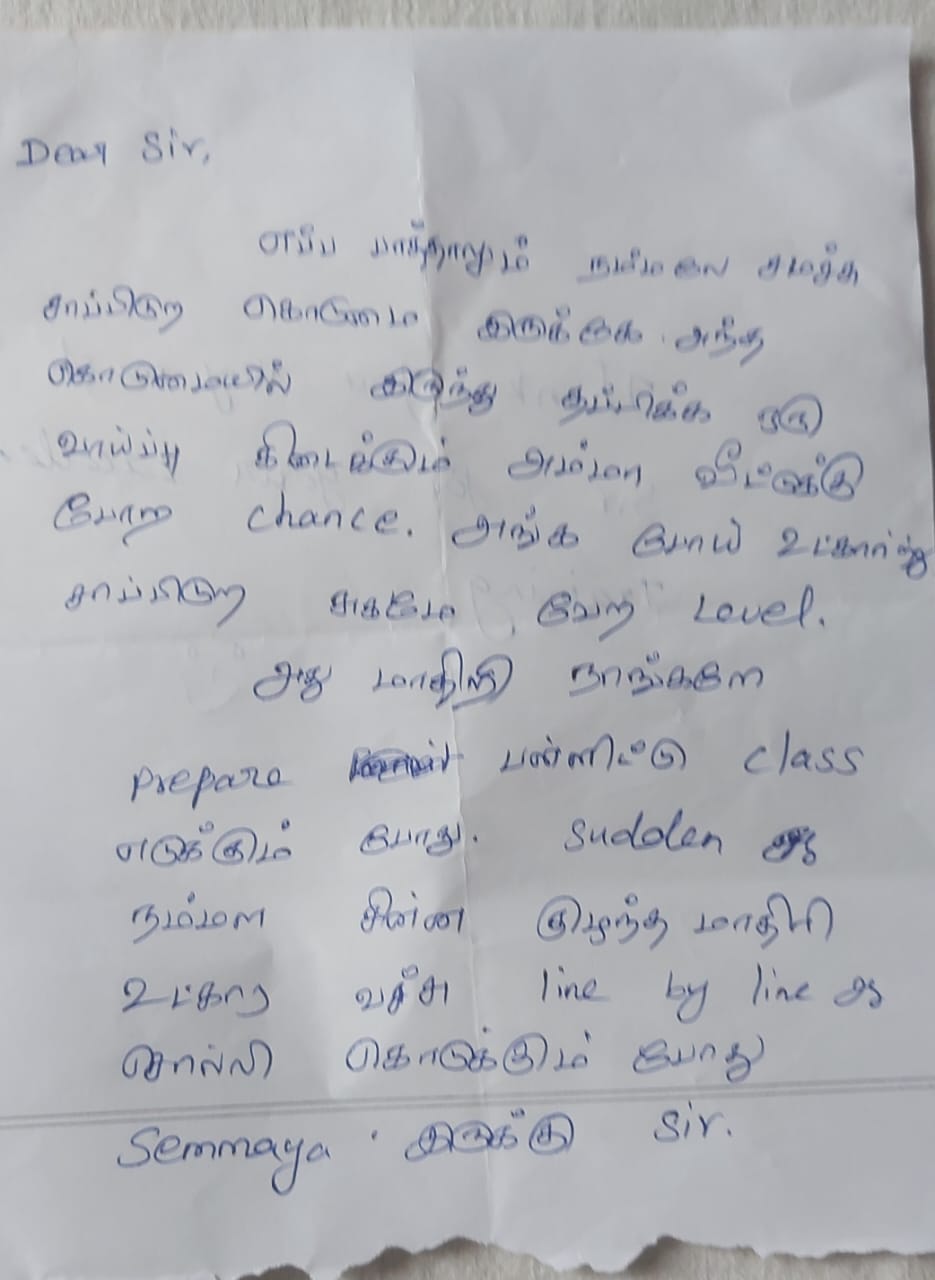 Dear Sir,
எப்ப பாத்தாலும் நம்மலை சமச்சு
சாப்பிடுற கொடுமை இருக்குக. அந்த
கொடுமையில் இருந்து தப்பிக்க ஒரு
வாய்ப்பு கிடைக்கும் அம்மா வீட்டுக்கு
போற chance. அங்க போய் உட்கார்ந்து
சாப்பிடுற சுகமே வேற Level.
அது மாதிரி நாங்களே
Prepare பண்ணிட்டு class
எடுக்கும் போது. Sudden ஆ
நம்மள சின்ன குழந்த மாதிரி
உட்கார வச்சு line by line ஆ
சொல்லி கொடுக்கும் போது
Semmaya இருக்கு Sir.